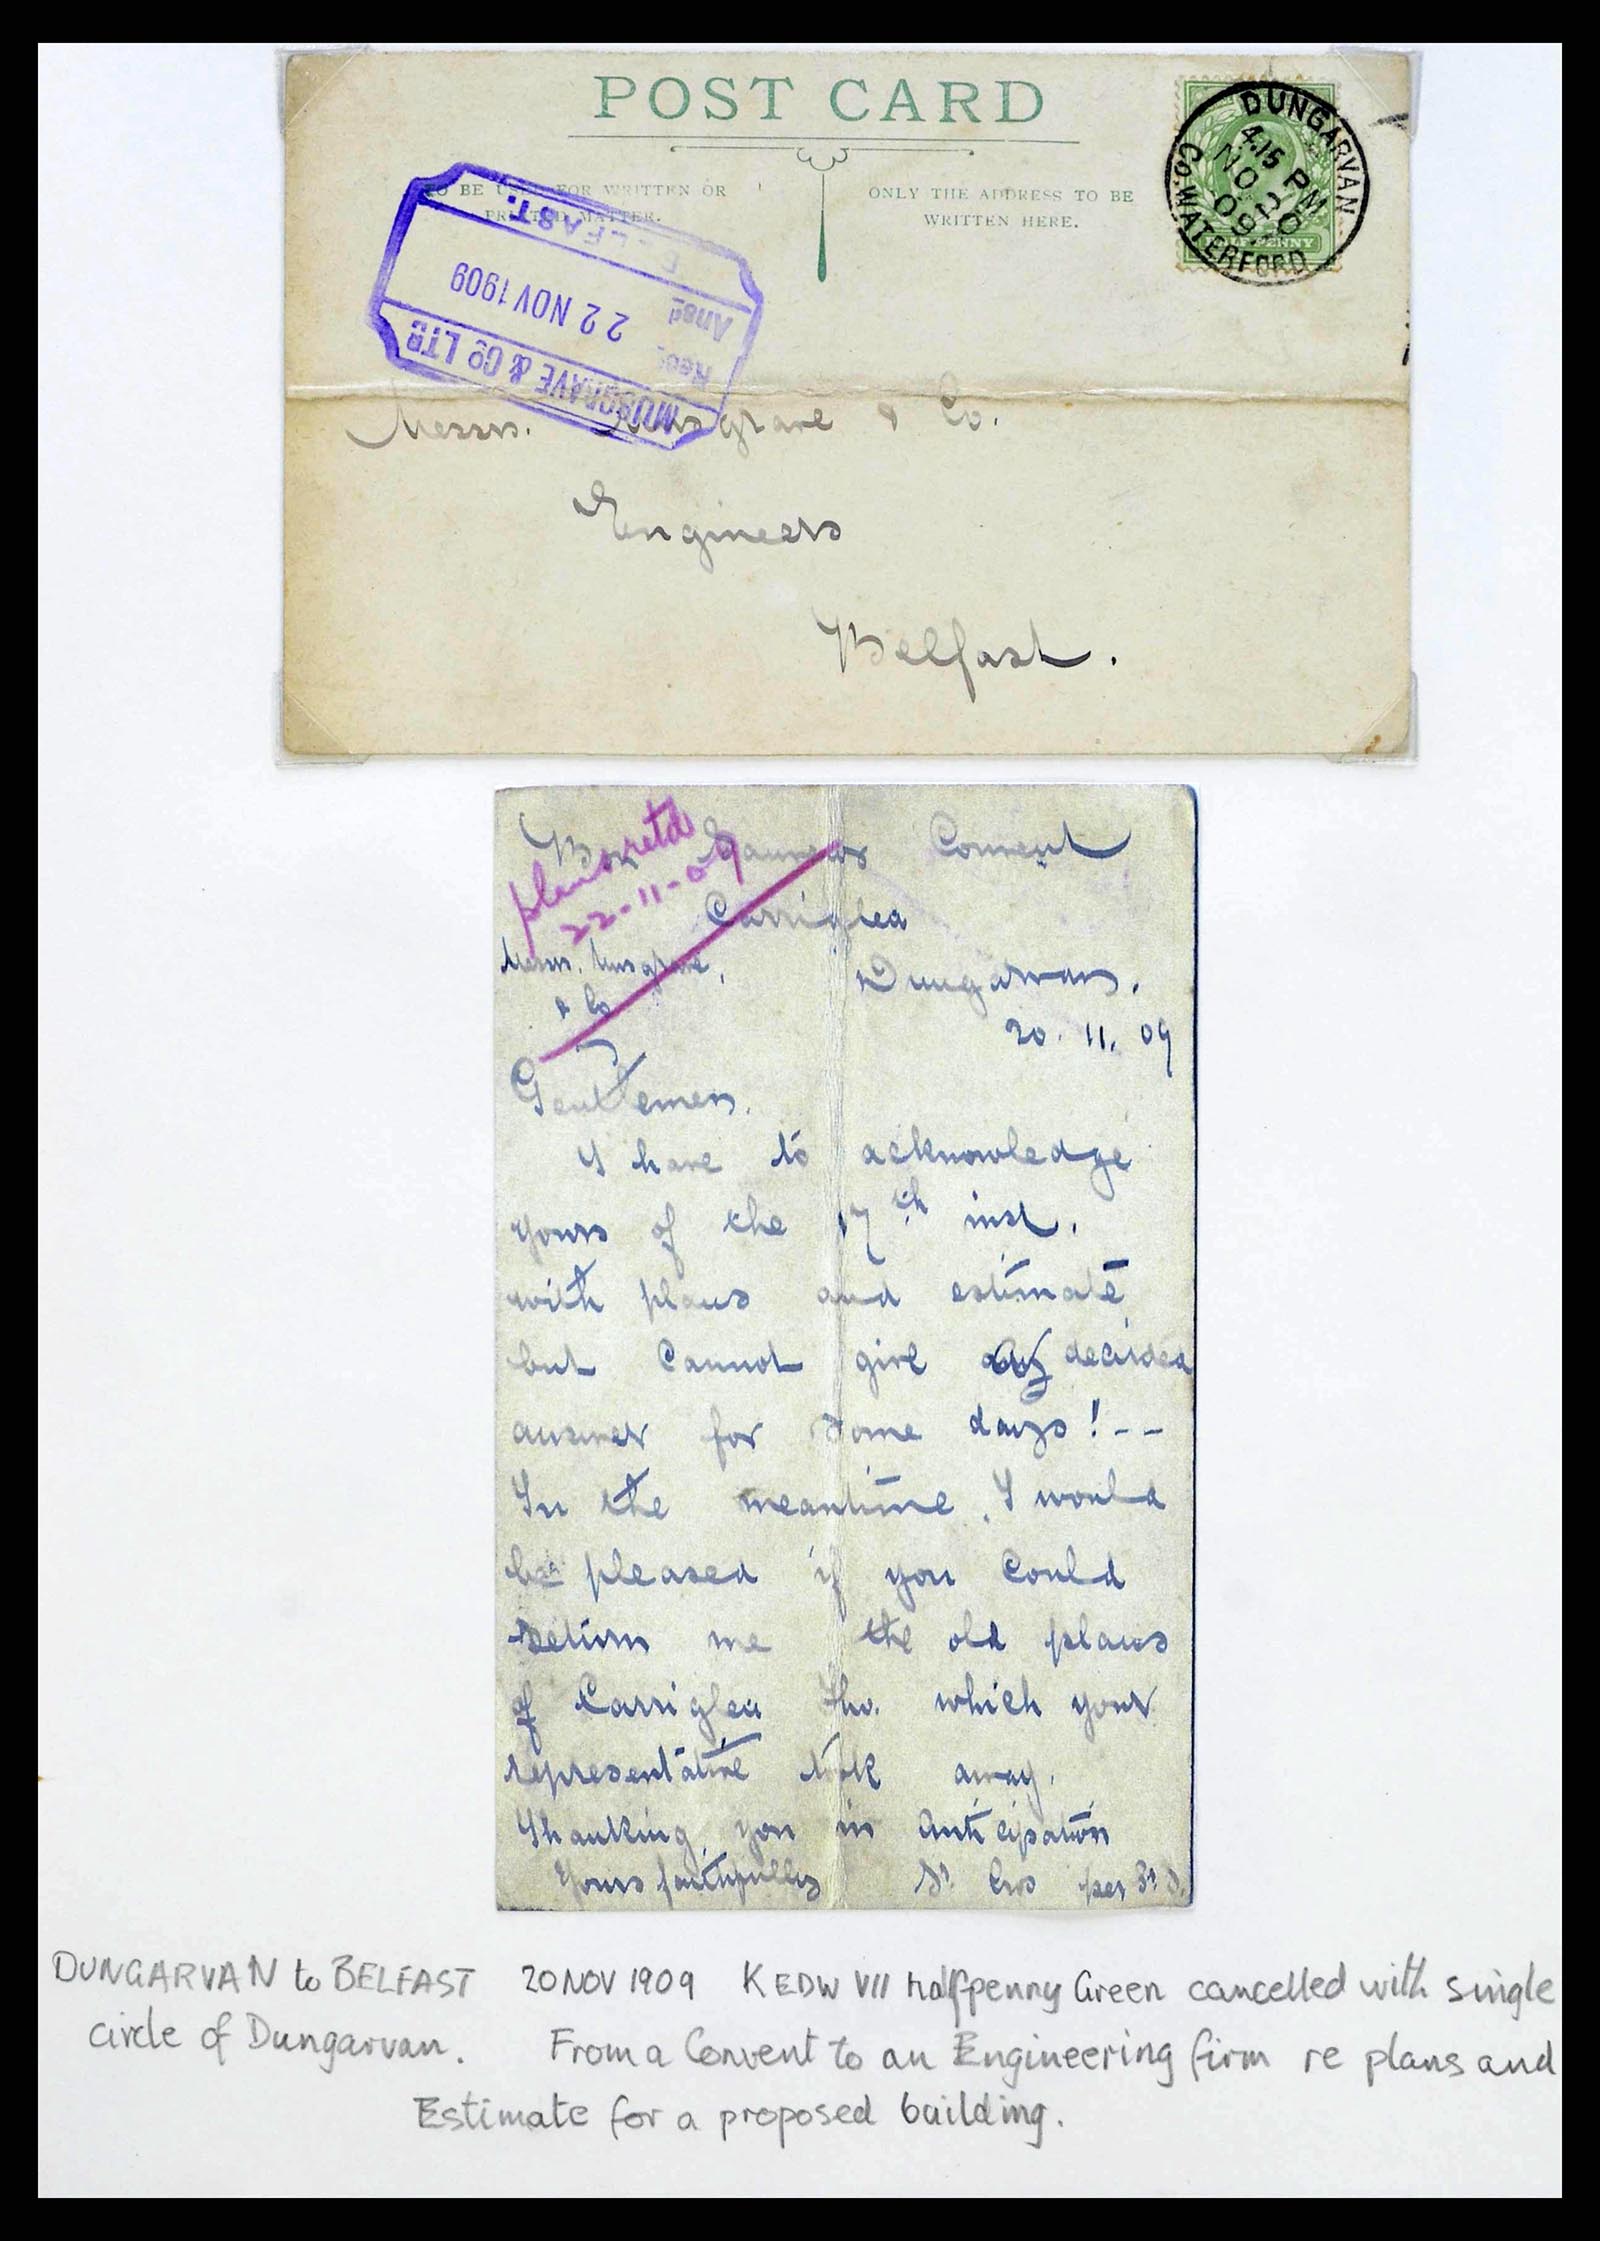 POST CARD
TO BE USED FOR WRITTEN OR
PRINTED MATTER.
ONLY THE ADDRESS TO BE
WRITTEN HERE.
DUNGARVAN
4.15 PM
NO 20
09
CO. WATERFORD
HALFPENNY
MUSGRAVE & Co LTD
Rec'd
22 NOV 1909
Ansd
BELFAST.
Messrs. Musgrave & Co.
Engineers
Belfast.
plans retd
22-11-09
Bon Sauveur Convent
Carriglea
Messrs. Musgrave,
& Co
Dungarvan.
20. 11. 09
Gentlemen.
I have to acknowledge
yours of the 17th inst.
with plans and estimate
but cannot give any decided
answer for some days! --
In the meantime, I would
be pleased if you could
return me the old plans
of Carriglea Ho. which your
representative took away.
Thanking you in anticipation
Yours faithfully per
DUNGARVAN to BELFAST 20 NOV 1909 K EDW VII Halfpenny Green cancelled with single
circle of Dungarvan. From a Convent to an Engineering firm re plans and
Estimate for a proposed building.